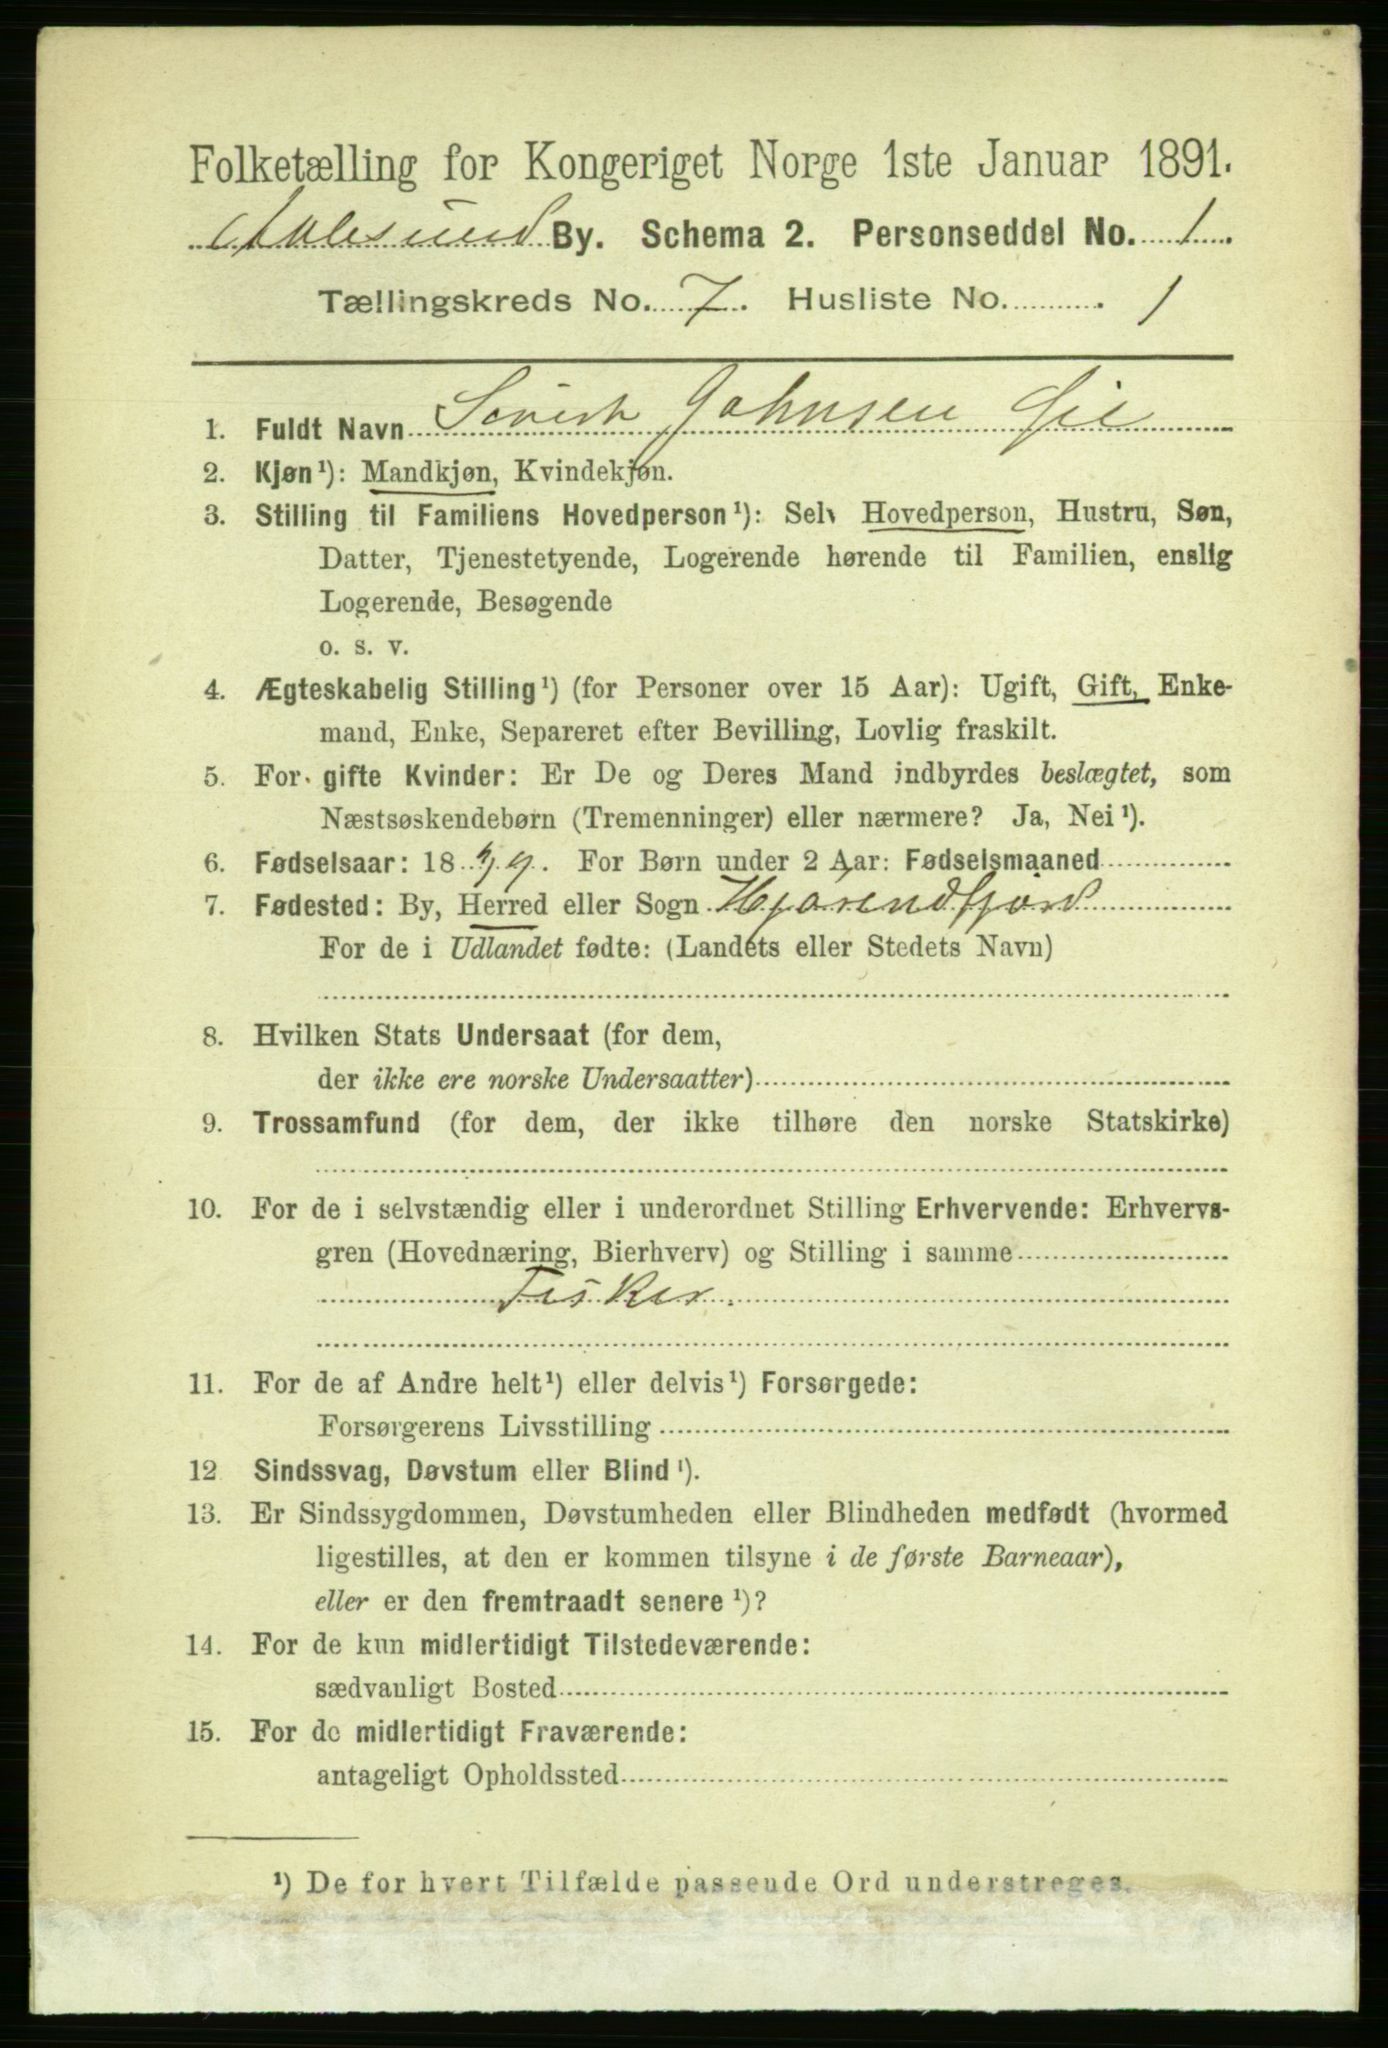 Folketælling for Kongeriget Norge 1ste Januar 1891.
Aalesund By. Schema 2. Personseddel No. 1.
Tællingskreds No. 7. Husliste No. 1
1. Fuldt Navn Johnsen
2. Kjøn¹): Mandkjøn, Kvindekjøn.
3. Stilling til Familiens Hovedperson¹): Selv Hovedperson, Hustru, Søn,
Datter, Tjenestetyende, Logerende hørende til Familien, enslig
Logerende, Besøgende
o. s. v.
4. Ægteskabelig Stilling¹) (for Personer over 15 Aar): Ugift, Gift, Enke-
mand, Enke, Separeret efter Bevilling, Lovlig fraskilt.
5. For gifte Kvinder: Er De og Deres Mand indbyrdes beslægtet, som
Næstsøskendebørn (Tremenninger) eller nærmere? Ja, Nei¹).
6. Fødselsaar: 18 For Børn under 2 Aar: Fødselsmaaned
7. Fødested: By, Herred eller Sogn Hjørendfjord
For de i Udlandet fødte: (Landets eller Stedets Navn)
8. Hvilken Stats Undersaat (for dem,
der ikke ere norske Undersaatter)
9. Trossamfund (for dem, der ikke tilhøre den norske Statskirke)
10. For de i selvstændig eller i underordnet Stilling Erhvervende: Erhvervs-
gren (Hovednæring, Bierhverv) og Stilling i samme
Fisker.
11. For de af Andre helt¹) eller delvis¹) Forsørgede:
Forsørgerens Livsstilling
12 Sindssvag, Døvstum eller Blind¹).
13. Er Sindssygdommen, Døvstumheden eller Blindheden medfødt (hvormed
ligestilles, at den er kommen tilsyne i de første Barneaar),
eller er den fremtraadt senere¹)?
14. For de kun midlertidigt Tilstedeværende:
sædvanligt Bosted
15. For de midlertidigt Fraværende:
antageligt Opholdssted
¹) De for hvert Tilfælde passende Ord understreges.